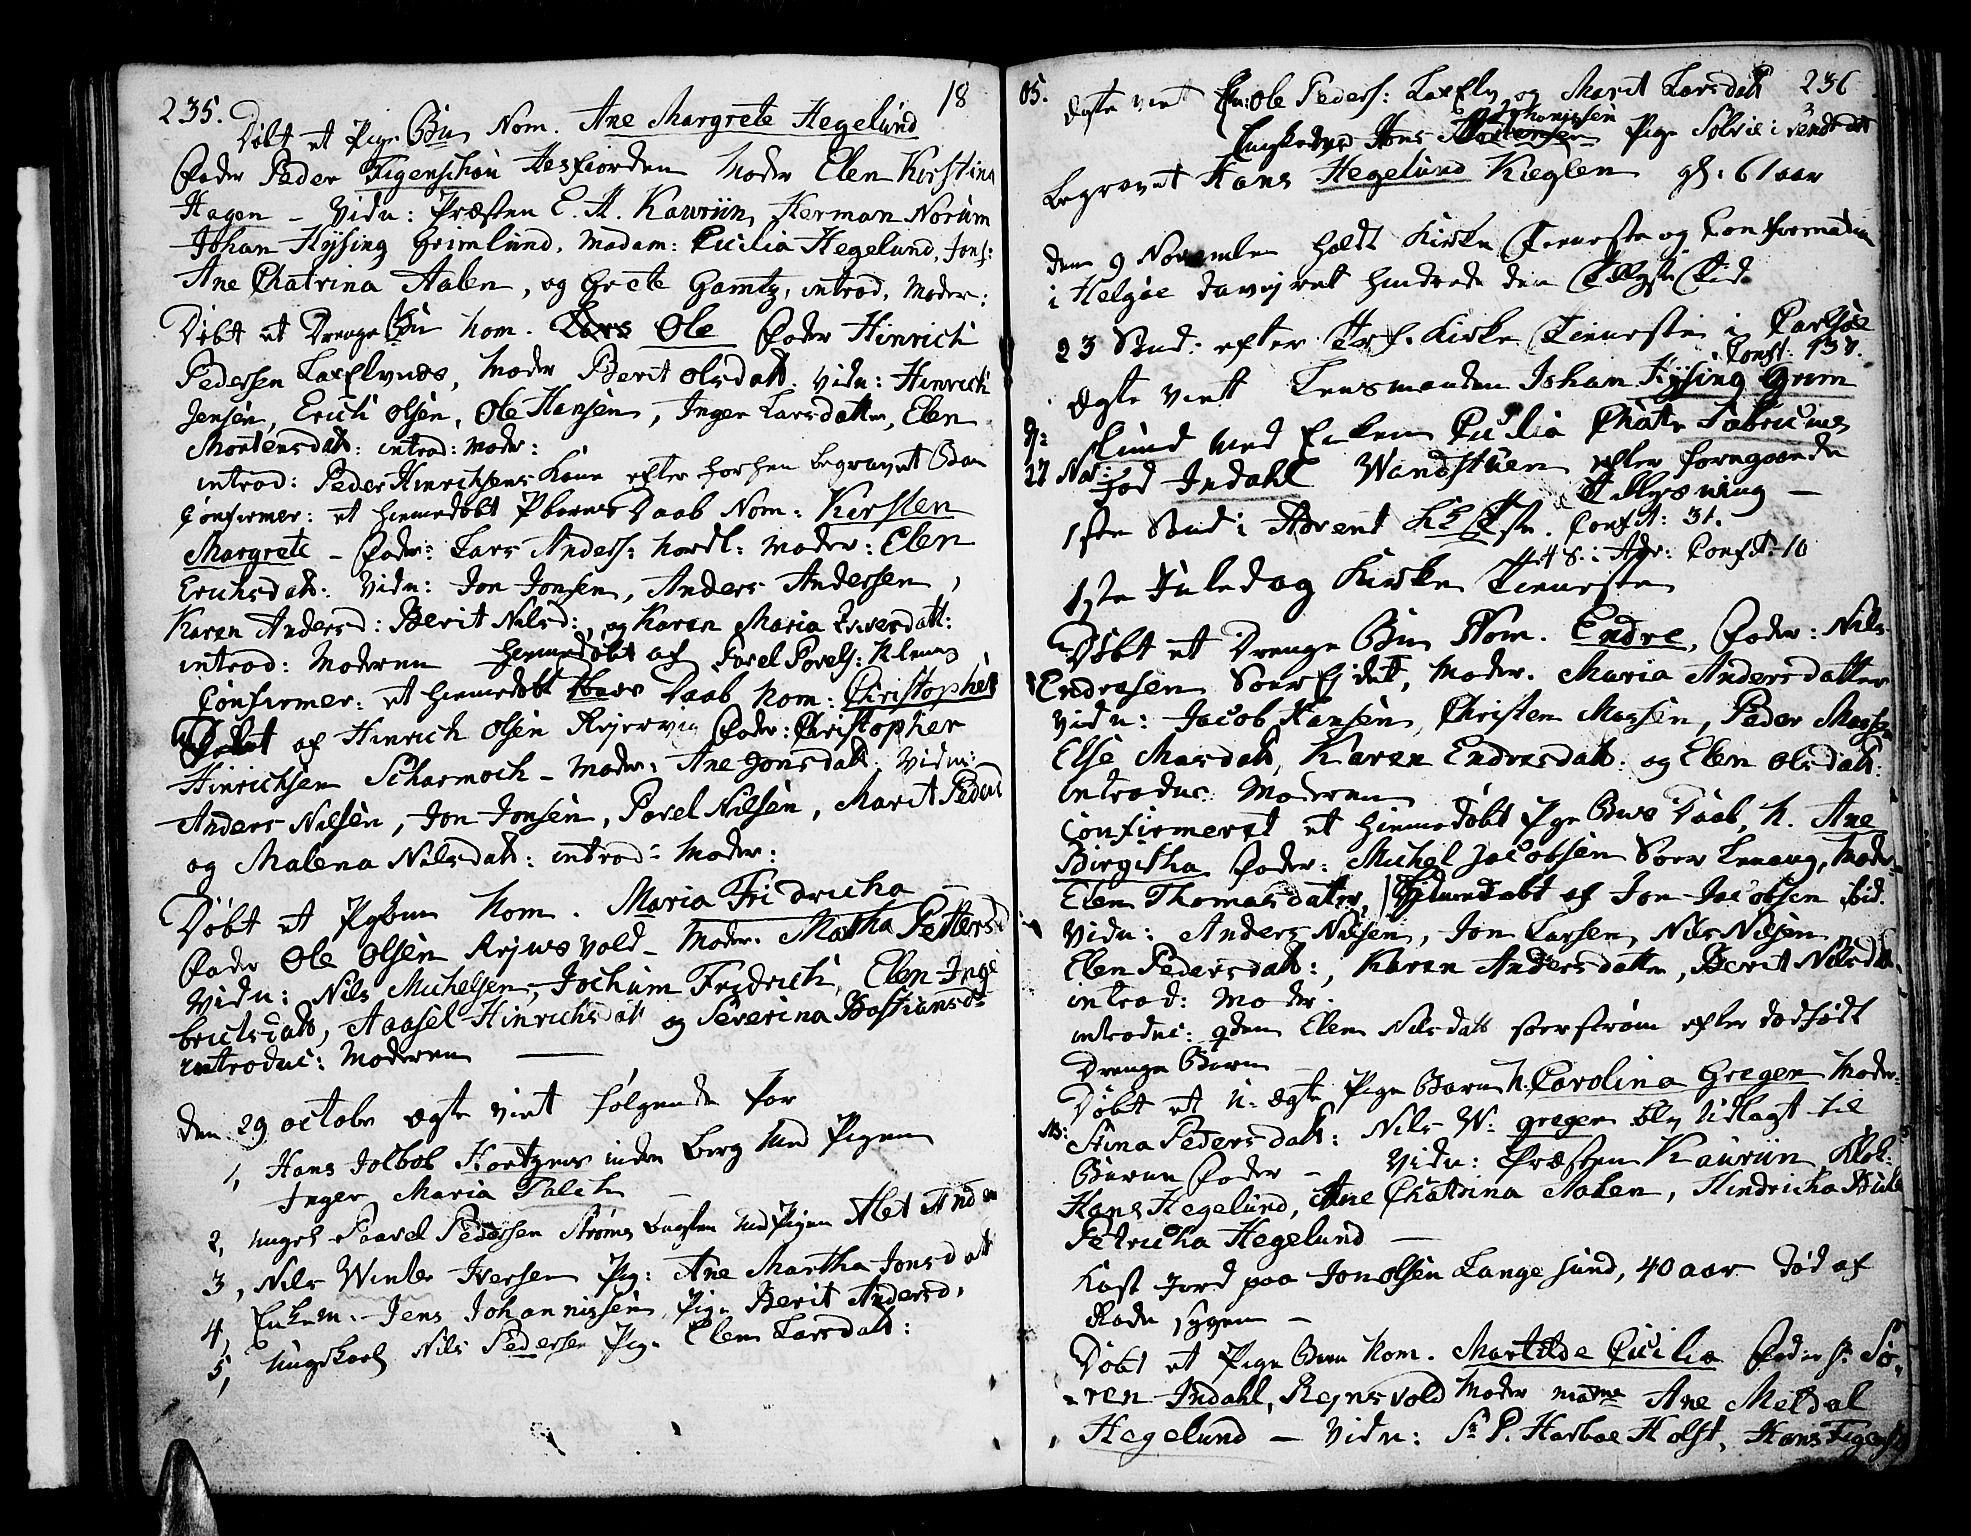 235. 18
Døbt et Pige Bn Nom. Ane Margrete Hegelund
Fader Peder Figenschou Hesfiorden Moder Elen Kirstina
Hagen – Vidn: Præsten E. A. Kauriin, Herman Norum
Johan Hysing Grimlund, Madam: Cicilia Hegelund, Jomf:
Ane Chatrina Aalen, og Grete Gamtz, introd. Moder:
Døbt et Drenge Bn Nom. Lars Ole Fader Hinrich
Pedersen Laxelvnæs, Moder Berit Olsdatt. Vidn: Hinrich
Jensen, Erich Olsen, Ole Hansen, Inger Larsdatter, Elen
Mortensdatt: introd: Moder:
introd: Peder Hinrichsens Kone efter forhen begravet Barn
Confirmer: et hiemedøbt Pbarns Daab Nom: Kirsten
Margrete – Fader: Lars Anders: Nordl: Moder: Elen
Erichsdatt: Vidn: Jon Jonsen, Anders Andersen,
Karen Andersd: Berit Nilsd:, og Karen Maria Iversdatt:
introd: Moderen hiemedøbt af Povel Povels:
Confirmer: et hiemedøbt Daab Nom: Christopher
Døbt af Hinrich Olsen Fader: Christopher
Hinrichsen Scharmoch – Moder: Ane Jonsdatt. Vidn:
Anders Nilsen, Jon Jonsen, Povel Nilsen, Marit Peders
og Malena Nilsdatt: introd: Moder:
Døbt et Pgbarn Nom. Maria Fridricha –
Fader Ole Olsen Rejnsvold – Moder. Martha Pettersd
Vidn: Nils Michelsen, Jochum Fredrich, Elen Inge
brictsdatt, Aaasel Hinrichsdatt og Severina Bastiansd
introduc: Moderen —
den 29 octobr ægte viet følgende Par
1, Hans Jolbob inden Berg med Pigen
Inger Maria Falch –
2, ungk Paavel Pedersen Strøms med Pigen Alet And
3, Nils Winter Iversen Pig: Ane Martha Jonsdatt
4, Enkem. Jens Johannissen, Pige Berit Andersd.
5, Ungkarl Nils Pedersen Pig. Elen Larsdatt:
05. 236
ægte viet Ole Peders: Laxelv og Marit Larsdatt
Thomissen
Enkemd Hans Pige Sølvie i
begravet Hans Hegelund Kieglen gl: 61 aar
den 9 November holdt Kirke Tieneste og Confirmation
i Helgøe da vejret hindrede den Tid
23 Sønd: efter Tref. Kirke Tieneste i Carlsøe
Conft: 137.
ægte viet Lensmanden Johan Hysing Grim
lund med Enken Cicilia Chatr Fabricius
27 Nov: Indahl Wandstuen efter foregaaende
Tillysning –
1ste Sønd: i Advent K: Tste. Conft: 31.
4 S: Adv: Conft: 10
1ste Juledag Kirke Tieneste
Døbt et Drenge Bn Nom. Endre, Fader: Nils
Endresen Sørejdet, Moder. Maria Andersdatter
Vidn: Jacob Hansen, Christen Massen, Peder Massen
Else Masdatt, Karen Endresdatt: og Elen Olsdatt:
introduc: Moderen
Confirmeret et hiemedøbt Pige Bns Daab, N. Ane
Birgitha Fader: Michel Jacobsen Sør Lenang, Moder:
Elen Thomasdatter, hiemedøbt af Jon Jacobsen ibid.
Vidn: Anders Nilsen, Jon Larsen, Nils Nilsen
Elen Pedersdatt:, Karen Andersdatter, Berit Nilsdatt.
introd: Moder.
introduc: qden Elen Nilsdatt Sørstrøm efter dødfødt
Drenge Barn
Døbt et U-ægte Pige Barn N. Carolina Greger Moder:
NB: Stina Pedersdatt: Nils W: greger bln Udlagt til
Barne Fader – Vidn: Præsten Kauriin, Klok:
Hans Hegelund, Ane Chatrina Aalen, Hindricha
Petricha Hegelund –
Kast Jord paa Jon Olsen Langesund, 40 aar død af
Rade sygen –
Døbt et Pige Barn Nom. Martilde Cicilia Fader Sr. Sø-
-ren Indahl, Rejnsvold Moder mame Ane Meldal
Hegelund – Vidn: Sr P. Harboe Holst, Hans Figensch